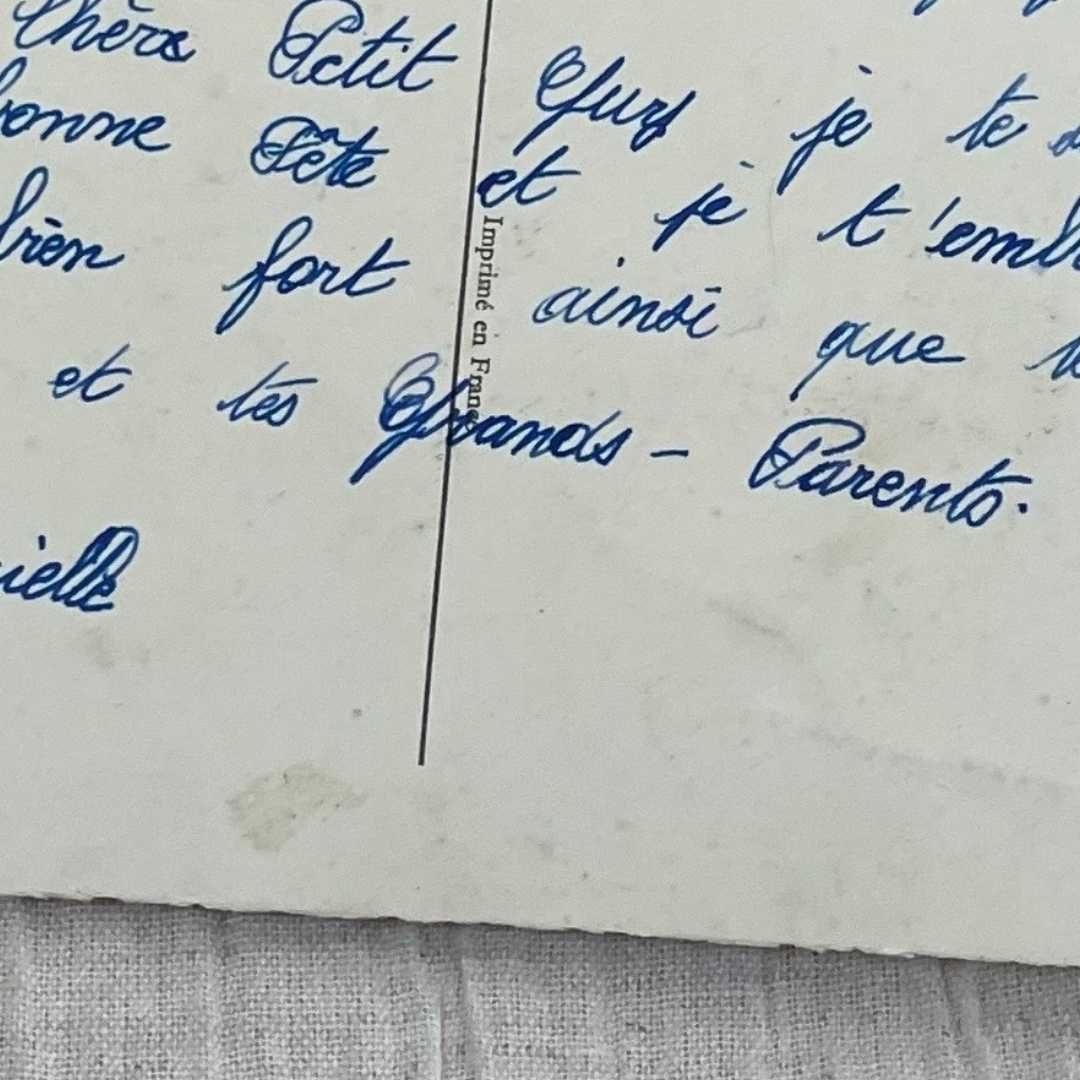 Chère Petit Guy je te
bonne Fête et je t'emb
bien fort ainsi que
et tes Grands - Parents.
ielle
Imprimé en France